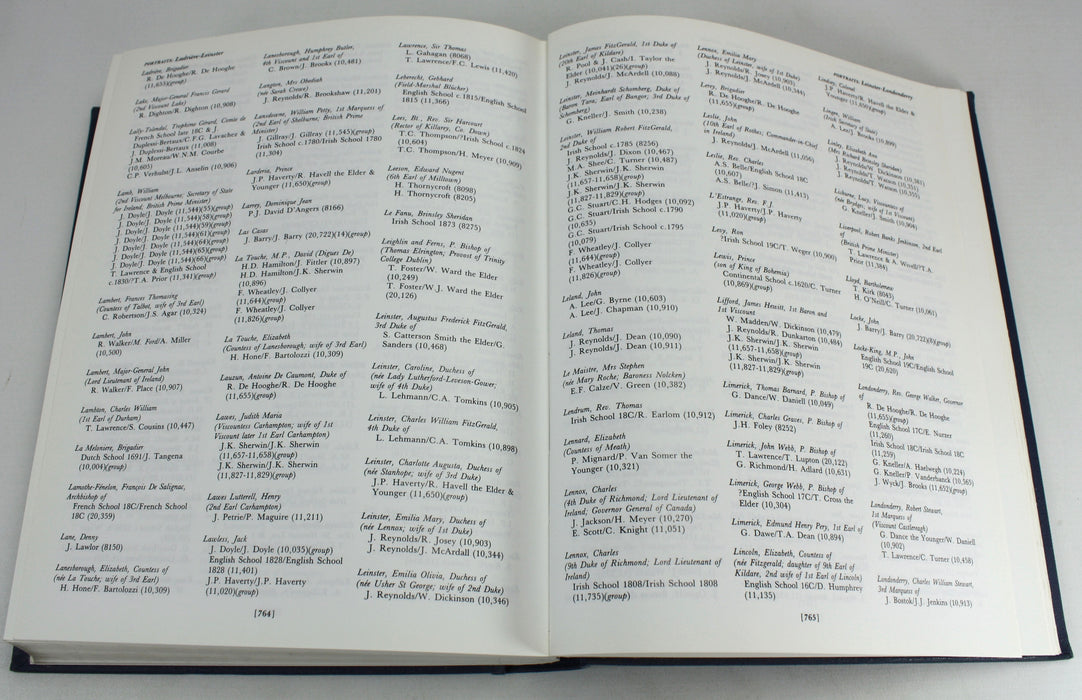 PORTRAITS: Ladvière-Leinster
Ladvière, Brigadier
R. De Hooghe/R. De Hooghe
(11,655)(group)
Lake, Major-General Francis Gerard
(2nd Viscount Lake)
R. Dighton/R. Dighton (10,908)
Lally-Tolendal, Trophime Gérard, Comte de
French School late 18C & J
Duplessi-Bertaux/C.F.G. Levachez &
J. Duplessi-Bertaux (11,008)
J.M. Moreau/W.N.M. Courbe
(10,605)
C.P. Verhulst/J.L. Anselin (10,906)
Lamb, William
(2nd Viscount Melbourne; Secretary of State
for Ireland; British Prime Minister)
J. Doyle/J. Doyle (11,544)(55)(group)
J. Doyle/J. Doyle (11,544)(58)(group)
J. Doyle/J. Doyle (11,544)(59)(group)
J. Doyle/J. Doyle (11,544)(61)(group)
J. Doyle/J. Doyle (11,544)(64)(group)
J. Doyle/J. Doyle (11,544)(65)(group)
J. Doyle/J. Doyle (11,544)(66)(group)
T. Lawrence & English School
c.1830/?T.A. Prior (11,341)(group)
Lambart, Frances Thomasina
(Countess of Talbot, wife of 3rd Earl)
C. Robertson/J.S. Agar (10,324)
Lambert, John
R. Walker/M. Ford/A. Miller
(10,500)
Lambert, Major-General John
(Lord Lieutenant of Ireland)
R. Walker/F. Place (10,907)
Lambton, Charles William
(1st Earl of Durham)
T. Lawrence/S. Cousins (10,447)
La Meloniere, Brigadier
Dutch School 1691/J. Tangena
(10,004)(group)
Lamothe-Fénelon, François De Salignac,
Archbishop of
French School 18C/French School
18C (20,359)
Lane, Denny
J. Lawlor (8150)
Lanesborough, Elizabeth, Countess of
(née La Touche; wife of 3rd Earl)
H. Hone/F. Bartolozzi (10,309)
Lanesborough, Humphrey Butler,
4th Viscount and 1st Earl of
C. Brown/J. Brooks (10,481)
Langton, Mrs Obediah
(née Sarah Crowe)
J. Reynolds/R. Brookshaw (11,201)
Lansdowne, William Petty, 1st Marquess of
(2nd Earl of Shelburne; British Prime
Minister)
J. Gillray/J. Gillray (11,545)(group)
Irish School c.1780/Irish School 1780
(11,304)
Larderia, Prince
J.P. Haverty/R. Havell the Elder &
Younger (11,650)(group)
Larrey, Dominique Jean
P.J. David D'Angers (8166)
Las Casas
J. Barry/J. Barry (20,722)(14)(group)
La Touche, M.P., David (Digues De)
H.D. Hamilton/J. Fittler (10,897)
H.D. Hamilton/J.K. Sherwin
(10,896)
F. Wheatley/J. Collyer
(11,644)(group)
F. Wheatley/J. Collyer
(11,826)(group)
La Touche, Elizabeth
(Countess of Lanesborough; wife of 3rd Earl)
H. Hone/F. Bartolozzi (10,309)
Lauzun, Antoine De Caumont, Duke of
R. De Hooghe/R. De Hooghe
(11,655)(group)
Lawes, Judith Maria
(Viscountess Carhampton; wife of 1st
Viscount later 1st Earl Carhampton)
J.K. Sherwin/J.K. Sherwin
(11,657-11,658)(group)
J.K. Sherwin/J.K. Sherwin
(11,827-11,829)(group)
Lawes Lutterell, Henry
(2nd Earl Carhampton)
J. Petrie/P. Maguire (11,211)
Lawless, Jack
J. Doyle/J. Doyle (10,035)(group)
English School 1828/English School
1828 (11,401)
J.P. Haverty/J.P. Haverty
(11,020)(group)
Lawrence, Sir Thomas
L. Gahagan (8068)
T. Lawrence/F.C. Lewis (11,420)
Leberecht, Gebhard
(Field-Marshal Blucher)
English School c.1815/English School
1815 (11,366)
Lees, Bt., Rev. Sir Harcourt
(Rector of Killarey, Co. Down)
T.C. Thompson/Irish School c.1824
(10,604)
T.C. Thompson/H. Meyer (10,909)
Leeson, Edward Nugent
(6th Earl of Milltown)
H. Thornycroft (8098)
H. Thornycroft (8205)
Le Fanu, Brinsley Sheridan
Irish School 1873 (8275)
Leighlin and Ferns, P. Bishop of
(Thomas Elrington; Provost of Trinity
College Dublin)
T. Foster/W. Ward the Elder
(10,249)
T. Foster/W.J. Ward the Elder
(20,126)
Leinster, Augustus Frederick FitzGerald,
3rd Duke of
S. Catterson Smith the Elder/G.
Sanders (10,468)
Leinster, Caroline, Duchess of
(née Lady Lutherford-Leveson-Gower;
wife of 4th Duke)
L. Lehmann/C.A. Tomkins (10,905)
Leinster, Charles William FitzGerald,
4th Duke of
L. Lehmann/C.A. Tomkins (10,898)
Leinster, Charlotte Augusta, Duchess of
(née Stanhope; wife of 3rd Duke)
J.P. Haverty/R. Havell the Elder &
Younger (11,650)(group)
Leinster, Emilia Mary, Duchess of
(née Lennox; wife of 1st Duke)
J. Reynolds/R. Josey (10,903)
J. Reynolds/J. McArdall (10,344)
Leinster, Emilia Olivia, Duchess of
(née Usher St George; wife of 2nd Duke)
J. Reynolds/W. Dickinson (10,346)
[764]
PORTRAITS: Leinster-Londonderry
Leinster, James FitzGerald, 1st Duke of
(20th Earl of Kildare)
R. Pool & J. Cash/I. Taylor the
Elder (10,041)(26)(group)
J. Reynolds/J. McArdell (10,088)
Leinster, Meinhardt Schomberg, Duke of
(Baron Tara, Earl of Bangor, 3rd Duke of
Schomberg)
G. Kneller/J. Smith (10,238)
Leinster, William Robert FitzGerald,
2nd Duke of
Irish School c.1785 (8256)
J. Reynolds/J. Dixon (10,467)
M.A. Shee/C. Turner (10,487)
J.K. Sherwin/J.K. Sherwin
(11,657-11,658)(group)
J.K. Sherwin/J.K. Sherwin
(11,827-11,829)(group)
G.C. Stuart/C.H. Hodges (10,092)
G.C. Stuart/Irish School c.1790
(10,635)
G.C. Stuart/Irish School c.1795
(10,079)
F. Wheatley/J. Collyer
(11,644)(group)
F. Wheatley/J. Collyer
(11,826)(group)
Leland, John
A. Lee/G. Byrne (10,603)
A. Lee/J. Chapman (10,910)
Leland, Thomas
J. Reynolds/J. Dean (10,090)
J. Reynolds/J. Dean (10,911)
Le Maistre, Mrs Stephen
(née Mary Roche; Baroness Nolcken)
E.F. Calze/V. Green (10,382)
Lendrum, Rev. Thomas
Irish School 18C/R. Earlom (10,912)
Lennard, Elizabeth
(Countess of Meath)
P. Mignard/P. Van Somer the
Younger (10,321)
Lennox, Charles
(4th Duke of Richmond; Lord Lieutenant of
Ireland; Governor General of Canada)
J. Jackson/H. Meyer (10,270)
E. Scott/C. Knight (11,051)
Lennox, Charles
(9th Duke of Richmond; Lord Lieutenant of
Ireland)
Irish School 1808/Irish School 1808
(11,735)(group)
Lennox, Emilia Mary
(Duchess of Leinster, wife of 1st Duke)
J. Reynolds/R. Josey (10,903)
J. Reynolds/J. McArdell (10,344)
Lerey, Brigadier
R. De Hooghe/R. De Hooghe
(11,655)(group)
Leslie, John
(10th Earl of Rothes; Commander-in-Chief
in Ireland)
J. Reynolds/J. McArdell (11,056)
Leslie, Rev. Charles
A.S. Belle/English School 18C
(10,607)
A.S. Belle/?J. Simon (11,413)
L'Estrange, Rev. F.J.
J.P. Haverty/J.P. Haverty
(11,020)(group)
Levy, Ron
?Irish School 19C/T. Weger (10,900)
Lewis, Prince
(son of King of Bohemia)
Continental School c.1620/C. Turner
(10,869)(group)
Lifford, James Hewitt, 1st Baron and
1st Viscount
W. Madden/W. Dickinson (10,479)
J. Reynolds/R. Dunkarton (10,484)
J.K. Sherwin/J.K. Sherwin
(11,657-11,658)(group)
J.K. Sherwin/J.K. Sherwin
(11,827-11,829)(group)
Limerick, Thomas Barnard, P. Bishop of
G. Dance/W. Daniell (10,049)
Limerick, Charles Graves, P. Bishop of
J.H. Foley (8252)
Limerick, John Webb, P. Bishop of
T. Lawrence/T. Lupton (20,122)
G. Richmond/H. Adlard (10,631)
Limerick, George Webb, P. Bishop of
?English School 17C/T. Cross the
Elder (10,304)
Limerick, Edmund Henry Pery, 1st Earl of
G. Dawe/T.A. Dean (10,894)
Lincoln, Elizabeth, Countess of
(née Fitzgerald; daughter of 9th Earl of
Kildare, 2nd wife of 1st Earl of Lincoln)
English School 16C/D. Humphrey
(11,135)
Lindsay, Colonel
J.P. Haverty/R. Havell the Elder &
Younger (11,650)(group)
Lingen, William
(Irish Secretary of State)
A. Lee/J. Brooks (10,899)
Linley, Elizabeth Ann
(Mrs Richard Brinsley Sheridan)
J. Reynolds/W. Dickinson (10,387)
J. Reynolds/T. Watson (10,351)
J. Reynolds/T. Watson (10,355)
Lisburne, Lucy, Viscountess of
(née Brydges; wife of 1st Viscount)
G. Kneller/J. Smith (10,904)
Liverpool, Robert Banks Jenkinson, 2nd Earl
of
(British Prime Minister)
T. Lawrence & A. Wivell/?T.A.
Prior (11,384)
Lloyd, Bartholomew
T. Kirk (8043)
H. O'Neill/C. Turner (10,061)
Locke, John
J. Barry/J. Barry (20,722)(8)(group)
Locke-King, M.P., John
English School 19C/English School
19C (20,620)
Londonderry, Rev. George Walker, Governor
of
R. De Hooghe/R. De Hooghe
(11,655)(group)
English School 17C/E. Nurner
(11,260)
Irish School 18C/Irish School 18C
(11,259)
G. Kneller/A. Haelwegh (10,224)
G. Kneller/P. Vanderbanck (10,365)
J. Wyck/J. Brooks (11,652)(group)
Londonderry, Robert Stewart,
1st Marquess of
(Viscount Castlereagh)
G. Dance the Younger/W. Daniell
(10,902)
T. Lawrence/C. Turner (10,458)
Londonderry, Charles William Stewart,
3rd Marquess of
J. Bostok/J.J. Jenkins (10,913)
[765]